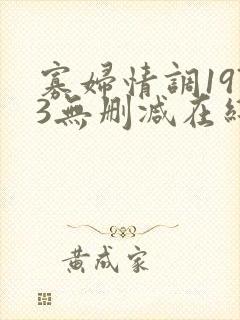 寡婦情調197
3無刪減在線
黄成家